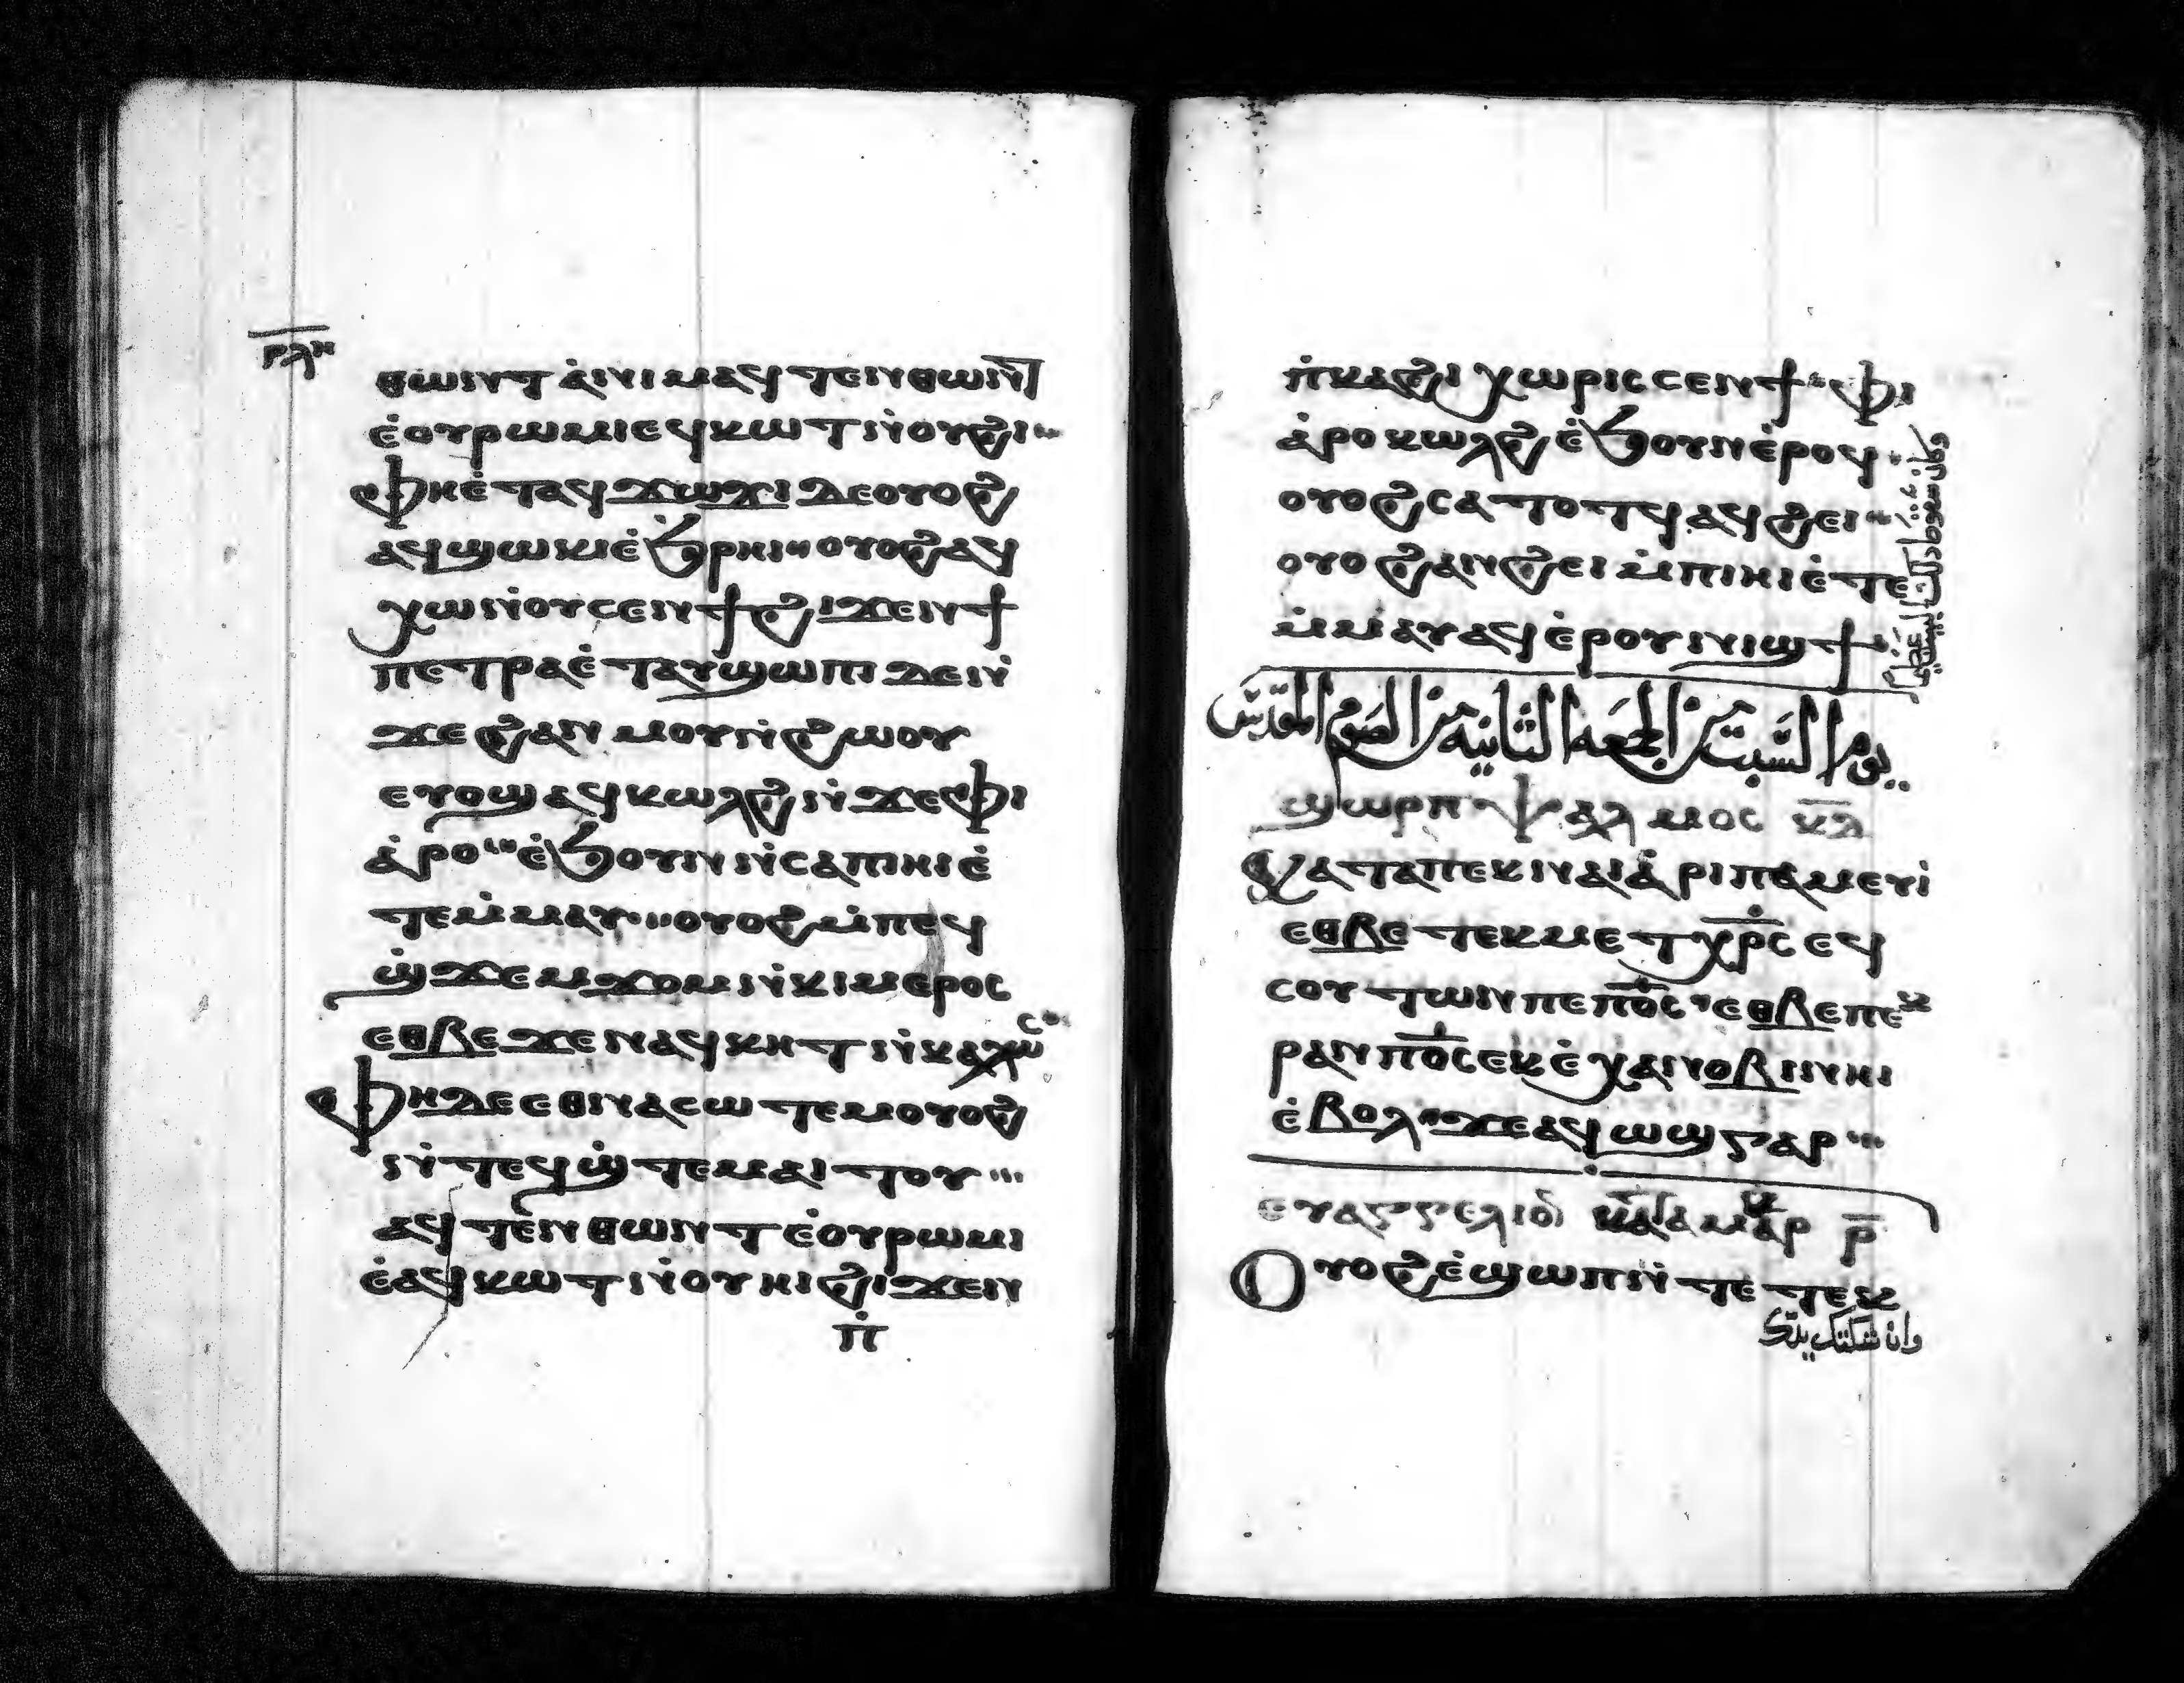 ⲣⲗⲏ
ⲑⲱⲛⲧ ⲁ̇ⲛⲓ ⲙⲁϥ ⲧⲉⲛⲑⲱⲛⲧ
ⲉ̇ⲟⲩⲣⲱⲙⲓ ⲉϥⲕⲱⲧ ⲛ̇ⲟⲩⲏⲓ
ⲫⲏⲉ̇ⲧⲁϥϫⲱϫⲓ ⲇⲉ ⲟⲩⲟϩ
ⲁϥϣⲱⲕⲓ ⲉ̇ϧⲣⲏⲓ ⲟⲩⲟϩ ⲁϥ
ⲭⲱ ⲛ̇ⲟⲩⲥⲉⲛϯ ϩⲓϫⲉⲛ ϯ
ⲡⲉⲧⲣⲁ ⲉ̇ⲧⲁⲩϣⲱⲡⲓ ⲇⲉ ⲛ̇
ϫⲉ ϩⲁⲛ ⲙⲟⲩⲛ̇ϩⲱⲟⲩ
ⲉⲩⲟϣ ⲁϥⲕⲱⲗϩ ⲛ̇ϫⲉ ⲫⲓ
ⲁ̇ⲣⲟ ⲉ̇ϧⲟⲩⲛ ⲛ̇ⲥⲁ ⲡⲓⲏⲓ ⲉ̇
ⲧⲉⲙ̇ⲙⲁⲩ ⲟⲩⲟϩ ⲙ̇ⲡⲉϥ
ϣ̇ϫⲉⲙϫⲟⲙ ⲛ̇ⲕⲓⲙ ⲉⲣⲟϥ
ⲉⲑⲃⲉ ϫⲉ ⲛⲁϥⲕⲏⲧ ⲛ̇ⲕⲁⲗⲱⲥ
ⲫⲏ ⲇⲉ ⲉⲑⲛⲁⲥⲱⲧⲉⲙ ⲟⲩⲟϩ
ⲛ̇ⲧⲉϥϣ̇ⲧⲉⲙⲁⲓⲧⲟⲩ
ⲁϥⲧⲉⲛⲑⲱⲛⲧ ⲉ̇ⲟⲩⲣⲱⲙⲓ
ⲉ̇ⲁϥⲕⲱⲧ ⲛ̇ⲟⲩⲏⲓ ϩⲓϫⲉⲛ
ⲡ̇
ⲡ̇ⲕⲁϩⲓ ⲭⲱⲣⲓⲥ ⲥⲉⲛϯ ⲫⲓ
ⲁ̇ⲣⲟ ⲕⲱⲗϩ ⲉ̇ϧⲟⲩⲛ ⲉ̇ⲣⲟϥ
ⲟⲩⲟϩ ⲥⲁⲧⲟⲧϥ ⲁϥϩⲉⲓ
ⲟⲩⲟϩ ⲁⲛϩⲉⲓ ⲙ̇ⲡⲓⲏⲓ ⲉ̇ⲧⲉ
ⲙ̇ⲙⲁⲩ ⲁϥⲉⲣⲟⲩⲛⲓϣϯ
وكان سقوط ذلك البيت عظيم
يوم السبت من الجمعه الثانيه من الصوم المقدس
ϣⲱⲣⲡ ⲯⲁⲗⲙⲟⲥ ⲕⲇ
ⲕⲁⲧⲁ ⲡⲉⲕⲛⲁⲓ ⲁ̇ⲣⲓⲡⲁⲙⲉⲩⲓ̇
ⲉⲑⲃⲉ ⲧⲉⲕⲙⲉⲧⲭⲣ̅ⲥ ⲉϥ
ⲥⲟⲩⲧⲱⲛ ⲡⲉ ⲡⲟ̅ⲥ ⲉⲑⲃⲉ ⲡⲉⲕ
ⲣⲁⲛ ⲡⲟ̅ⲥ ⲉⲕⲉ̇ⲭⲁ ⲛⲟⲃⲓ ⲛⲏⲓ
ⲉ̇ⲃⲟⲗ ϫⲉ ⲁϥⲱϣ ⲅⲁⲣ
ⲉⲩⲁⲅⲅⲉⲗⲓⲟ̅ ⲕⲁⲧⲁ ⲙⲁⲣⲕ ⲣ̅
ⲟⲩⲟϩ ⲉ̇ϣⲱⲡ ⲛ̇ⲧⲉ ⲧⲉⲕ
وان شككتك يدك